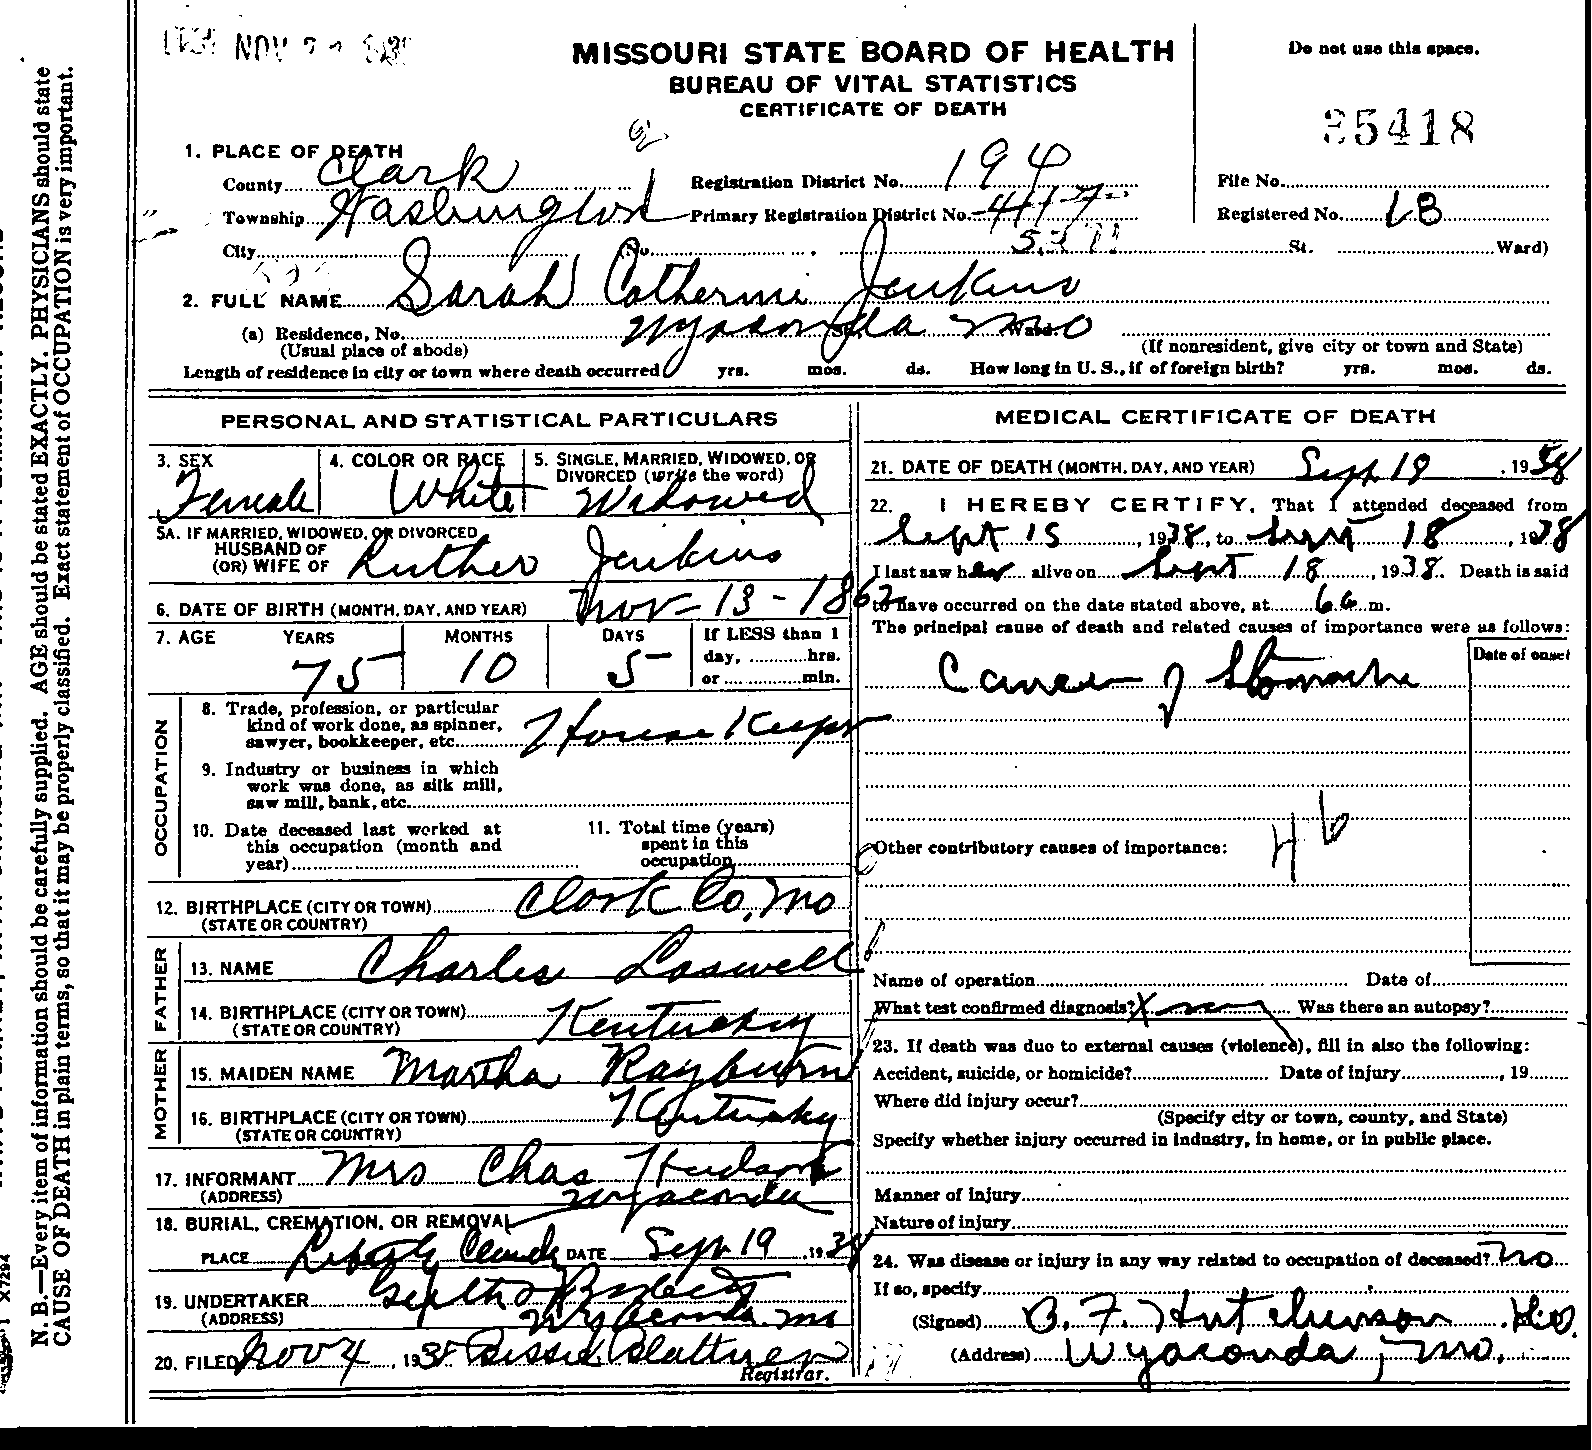 NOV
MISSOURI STATE BOARD OF HEALTH
BUREAU OF VITAL STATISTICS
CERTIFICATE OF DEATH
Do not use this space.
35418
1. PLACE OF DEATH
County Clark
Registration District No. 194
File No.
Township Washington
Primary Registration District No. 4117
Registered No. 18
City No. St. Ward)
2. FULL NAME Sarah Catherine Jenkins
(a) Residence, No. Wyaconda Mo Ward
(Usual place of abode) (If nonresident, give city or town and State)
Length of residence in city or town where death occurred yrs. mos. ds. How long in U. S., if of foreign birth? yrs. mos. ds.
PERSONAL AND STATISTICAL PARTICULARS
3. SEX
Female
4. COLOR OR RACE
White
5. SINGLE, MARRIED, WIDOWED, OR
DIVORCED (write the word)
Widowed
5A. IF MARRIED, WIDOWED, OR DIVORCED
HUSBAND OF
(OR) WIFE OF Luther Jenkins
6. DATE OF BIRTH (MONTH, DAY, AND YEAR) Nov - 13 - 1862
7. AGE YEARS MONTHS DAYS If LESS than 1
day, hrs.
or min.
75 10 5
OCCUPATION
8. Trade, profession, or particular
kind of work done, as spinner,
sawyer, bookkeeper, etc. House Keeper
9. Industry or business in which
work was done, as silk mill,
saw mill, bank, etc.
10. Date deceased last worked at
this occupation (month and
year)
11. Total time (years)
spent in this
occupation
12. BIRTHPLACE (CITY OR TOWN) Clark Co, Mo
(STATE OR COUNTRY)
FATHER
13. NAME Charles Laswell
14. BIRTHPLACE (CITY OR TOWN) Kentucky
(STATE OR COUNTRY)
MOTHER
15. MAIDEN NAME Martha Rayburn
16. BIRTHPLACE (CITY OR TOWN) Kentucky
(STATE OR COUNTRY)
17. INFORMANT Mrs Chas Hudson
(ADDRESS) Wyaconda
18. BURIAL, CREMATION, OR REMOVAL
PLACE Liberty Church DATE Sept 19, 1938
19. UNDERTAKER
(ADDRESS) Wyaconda Mo
20. FILED Nov 4, 1938 Bessie Blattner
Registrar.
MEDICAL CERTIFICATE OF DEATH
21. DATE OF DEATH (MONTH, DAY, AND YEAR) Sept 18, 1938
22. I HEREBY CERTIFY, That I attended deceased from
Sept 15, 1938, to Sept 18, 1938
I last saw her alive on Sept 18, 1938. Death is said
to have occurred on the date stated above, at 6 a m.
The principal cause of death and related causes of importance were as follows:
Date of onset
Cancer of Stomache
46
Other contributory causes of importance:
Name of operation Date of
What test confirmed diagnosis? X ray Was there an autopsy?
23. If death was due to external causes (violence), fill in also the following:
Accident, suicide, or homicide? Date of injury , 19
Where did injury occur?
(Specify city or town, county, and State)
Specify whether injury occurred in industry, in home, or in public place.
Manner of injury
Nature of injury
24. Was disease or injury in any way related to occupation of deceased? No
If so, specify
(Signed) B. F. Hutchinson
(Address) Wyaconda, Mo.
N. B.—Every item of information should be carefully supplied. AGE should be stated EXACTLY. PHYSICIANS should state
CAUSE OF DEATH in plain terms, so that it may be properly classified. Exact statement of OCCUPATION is very important.
X7294